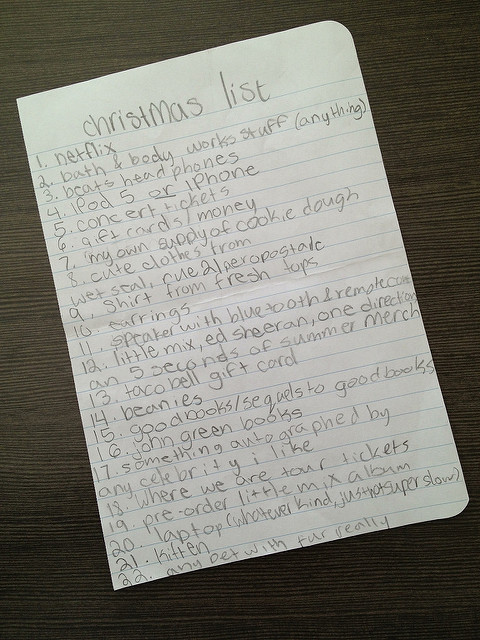 christmas list
1. netflix
2. bath & body works stuff (anything)
3. beats headphones
4. iPod 5 or iPhone
5. concert tickets
6. gift cards/money
7. my own supply of cookie dough
8. cute clothes from
wet seal, rue 21/aeropostale
9. shirt from fresh tops
10. earrings
11. speaker with bluetooth & remote
12. little mix, ed sheeran, one direction
an 5 seconds of summer merch
13. taco bell gift card
14. beanies
15. good books/sequels to good books
16. john green books
17. something autographed by
any celebrity i like
18. where we are tour tickets
19. pre-order little mix album
20. laptop (whatever kind, just not super slow)
21. kitten
22. any pet with fur really